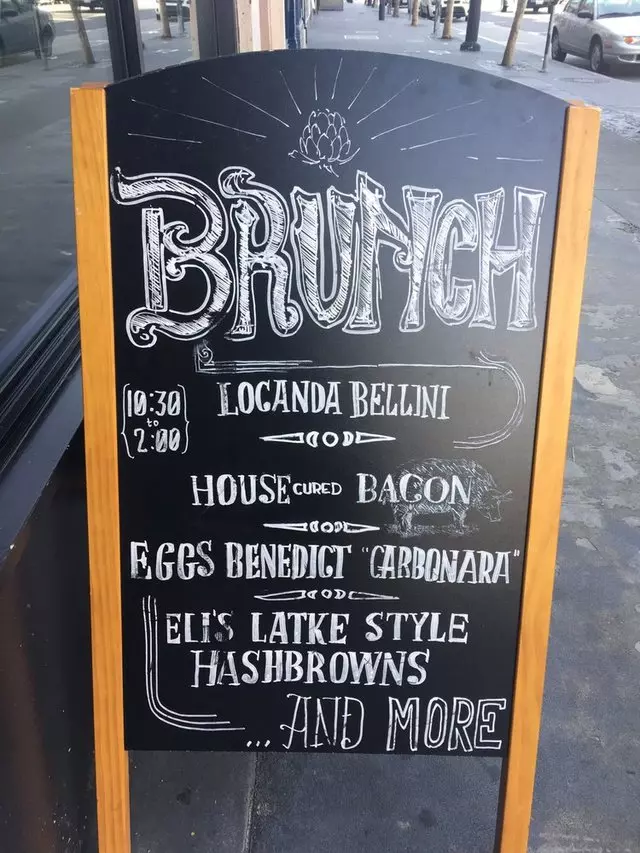 BRUNCH
10:30
to
2:00
LOCANDA BELLINI
HOUSE CURED BACON
EGGS BENEDICT "CARBONARA"
ELI'S LATKE STYLE
HASHBROWNS
...AND MORE